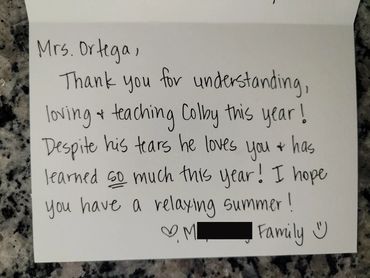 Mrs. Ortega,
Thank you for understanding,
loving + teaching Colby this year!
Despite his tears he loves you + has
learned so much this year! I hope
you have a relaxing summer!
♡, M Family :)